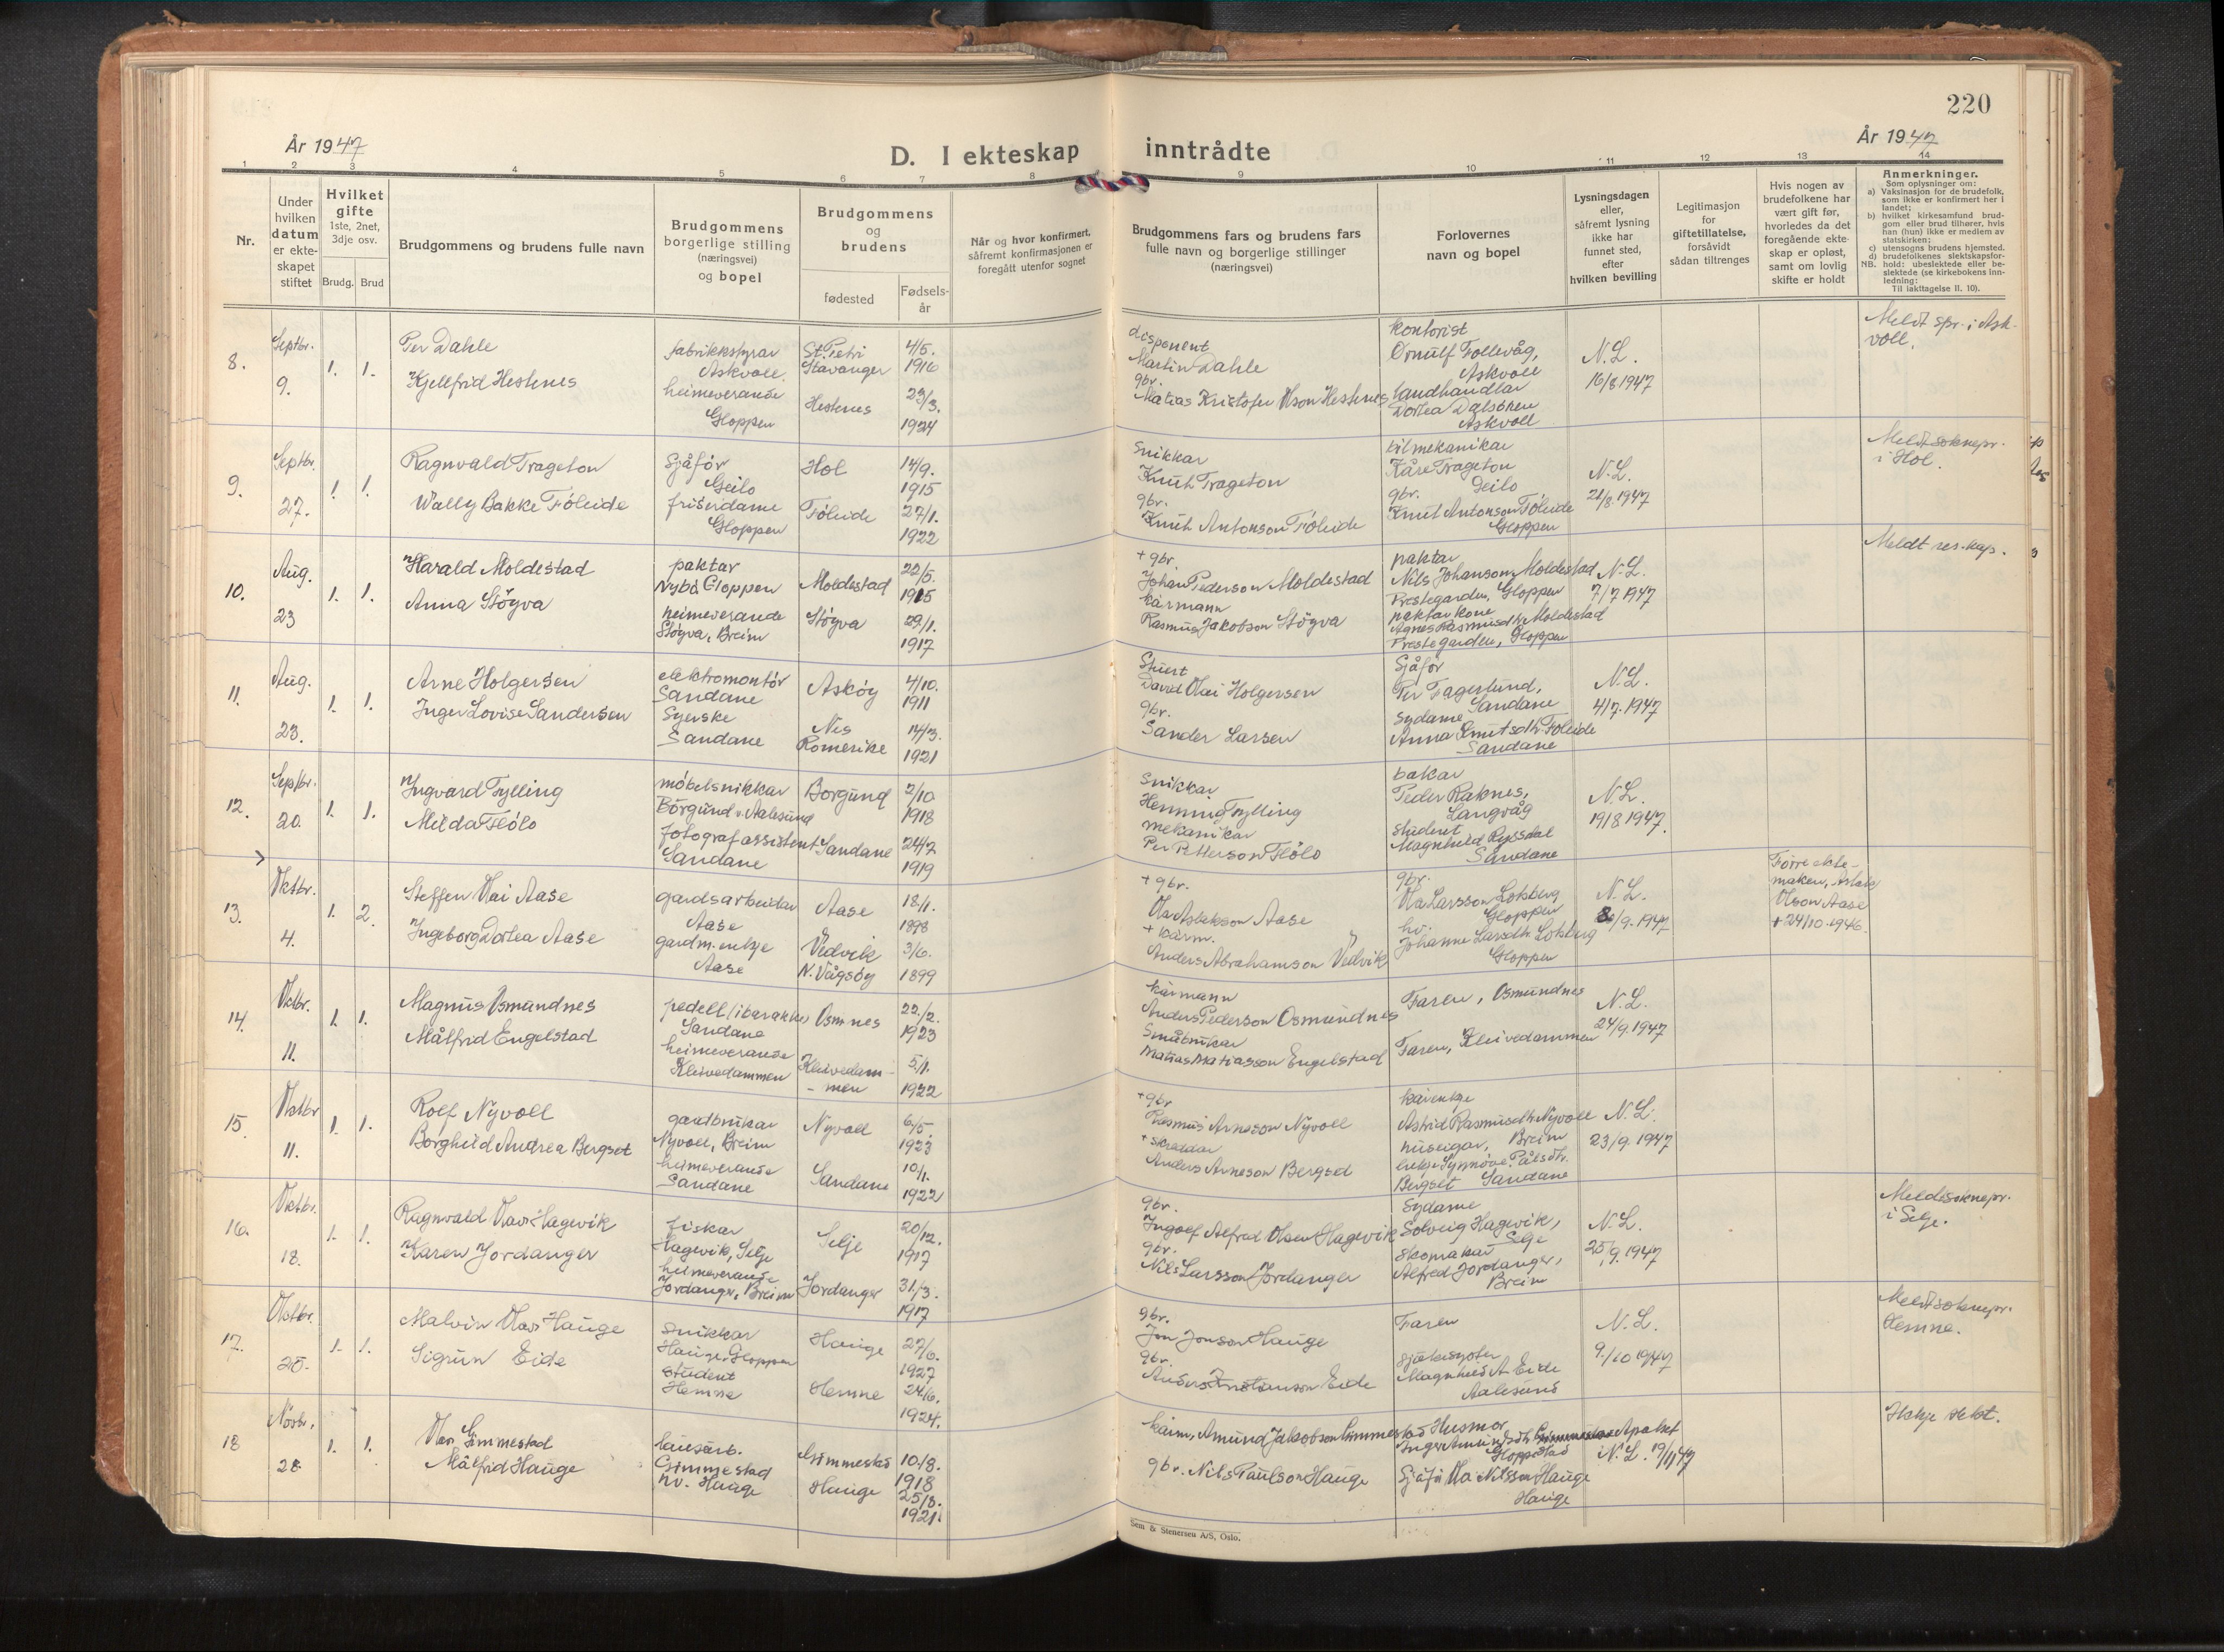 220
År 1947
År 1947
D. I ekteskap inntrådte
1 2 3 4 5 6 7 8 9 10 11 12 13 14
Nr.
Under
hvilken
datum
er ekte-
skapet
stiftet
Hvilket
gifte
1ste, 2net,
3dje osv.
Brudg. Brud
Brudgommens og brudens fulle navn
Brudgommens
borgerlige stilling
(næringsvei)
og bopel
Brudgommens
og
brudens
fødested
Fødsels-
år
Når og hvor konfirmert,
såfremt konfirmasjonen er
foregått utenfor sognet
Brudgommens fars og brudens fars
fulle navn og borgerlige stillinger
(næringsvei)
Forlovernes
navn og bopel
Lysningsdagen
eller,
såfremt lysning
ikke har
funnet sted,
efter
hvilken bevilling
Legitimasjon
for
giftetillatelse,
forsåvidt
sådan tiltrenges
Hvis nogen av
brudefolkene har
vært gift før,
hvorledes da det
foregående ekte-
skap er opløst,
samt om lovlig
skifte er holdt
Anmerkninger.
Som oplysninger om:
a) Vaksinasjon for de brudefolk,
som ikke er konfirmert her i
landet;
b) hvilket kirkesamfund brud-
gom eller brud tilhører, hvis
han (hun) ikke er medlem av
statskirken;
c) utensogns brudens hjemsted.
d) brudefolkenes slektskapsfor-
NB. hold: ubeslektede eller be-
slektede (se kirkebokens inn-
ledning:
Til iakttagelse II. 10).
8.
Septbr.
9.
1. 1.
Per Dahle
Kjellfrid Hestnes
fabrikkstyrar
Askvoll.
heimeverande
Gloppen
St. Petri
Stavanger
Hestnes
4/5.
1916
23/3.
1924
disponent
Martin Dahle
gbr.
Matias Kristofer Olson Hestnes
kontorist
Ørnulf Follevåg,
Askvoll
landhandlar
Dortea Dalsøren
Askvoll
N.L.
16/8 1947
Meldt spr. i Ask-
voll.
9.
Septbr.
27.
1. 1.
Ragnvald Trageton
Wally Bakke Føleide
Sjåfør
Geilo
friserdame
Gloppen
Hol
Føleide
14/9.
1915
27/1.
1922
Snikkar
Knut Trageton
gbr.
Knut Antonson Føleide
bilmekanikar
Kåre Trageton
Geilo
gbr.
Knut Antonson Føleide
Gloppen
N.L.
21/8. 1947
Meldt soknepr.
i Hol.
10.
Aug.
23
1. 1.
Harald Moldestad
Anna Støyva
paktar
Nybø Gloppen
heimeverande
Støyva, Breim
Moldestad
Støyva
22/5.
1915
29/1.
1917
+ gbr.
Johan Pederson Moldestad
kårmann
Rasmus Jakobson Støyva
paktar
Nils Johanson Moldestad
Prestegarden, Gloppen
paktarkone
Agnes Rasmusdtr. Moldestad
Prestegarden, Gloppen
N.L.
7/7 1947
Meldt res. kap.
11.
Aug.
23.
1. 1.
Arne Holgersen
Inger Lovise Sandersen
elektromontør
Sandane
Syerske
Sandane
Askøy
Nes
Romerike
4/10.
1911
14/3.
1921
Stuert
David Olai Holgersen
gbr.
Sander Larsen
Sjåfør
Per Fagerlund,
Sandane
Sydame
Anna Knutsdtr. Føleide
Sandane
N.L.
4/7. 1947
12.
Septbr.
20.
1. 1.
Ingvard Tylling
Milda Flølo
møbelsnikkar
Borgund v. Aalesund
fotografassistent
Sandane
Borgund
Sandane
2/10
1918
24/7
1919
Snikkar
Henning Tylling
mekanikar
Per Petterson Flølo
bakar
Peder Raknes,
Langvåg
student
Magnhild Ryssdal
Sandane
N.L.
19/8 1947.
13.
Oktbr.
4.
1. 2.
Steffen Olai Aase
Ingeborg Dortea Aase
gardsarbeidar
Aase
gardm. enkje
Aase
Aase
Vedvik
N. Vågsøy
18/1.
1898
3/6.
1899
+ gbr.
Ola Aslakson Aase
+ kårm.
Anders Abrahamson Vedvik
gbr.
Ola Larsson Lokberg
Gloppen
hv.
Johanne Larsdtr. Lokberg
Gloppen
N.L.
/9. 1947
Førre ekte-
maken, Aslak
Olson Aase
+ 24/10. 1946.
14.
Oktbr.
11.
1. 1.
Magnus Osmundnes
Målfrid Engelstad
pedell (i barakke)
Sandane
heimeverande
Kleivedammen
Osmnes
Kleivedam-
- men
22./2.
1923
5./1.
1922
kårmann
Anders Pederson Osmundnes
Småbrukar
Matias Matiasson Engelstad
Faren, Osmundnes
Faren, Kleivedammen
N.L.
24/9. 1947
15.
Oktbr
11.
1. 1.
Rolf Nyvoll
Borghild Andrea Bergset
gardbrukar
Nyvoll, Breim
heimeverande
Sandane
Nyvoll
Sandane
6/5
1923
10/1.
1922
+ gbr
Rasmus Arneson Nyvoll
+ skreddar
Anders Arneson Bergset
kårenkje
Astrid Rasmusdtr. Nyvoll
huseigar, Breim
enkje Synnøve Pålsdtr.
Bergset Sandane
N.L.
23/9. 1947
16.
Oktbr.
18.
1. 1.
Ragnvald Olav Hagevik
Karen Jordanger
fiskar
Hagevik, Selje
heimeverande
Jordanger, Breim
Selje
Jordanger
20/12.
1917
31/3.
1917
gbr.
Ingolf Alfred Olsen Hagevik
gbr.
Nils Larsson Jordanger
Sydame
Solveig Hagevik,
Selje
Skomakar
Alfred Jordanger,
Breim
N.L.
25/9. 1947
Meldt soknepr.
i Selje.
17.
Oktbr.
25.
1. 1.
Malvin Olav Hauge
Sigrun Eide
Snikkar
Hauge, Gloppen
student
Hemne
Hauge
Hemne
27/6.
1927
24/6.
1924.
gbr.
Jon Jonson Hauge
gbr.
Anders Eide
Faren
Sjukesyster
Magnhild A. Eide
Aalesund
N.L.
9./10 1947
Meldt soknepr.
Hemne.
18
Novbr.
28
1. 1.
Olav Gimmestad
Målfrid Hauge
lausarb.
Gimmestad
hv. Hauge
Gimmestad
Hauge
10/8.
1918
25/8.
1921.
kårm. Amund Jakobson Gimmestad
gbr. Nils Paulson Hauge
Husmor
Inger Amundsdtr. Apalset
Gloppestad
Sjåfør Ola Nilsson Hauge
Hauge
N.L. 19/11 47
Sem & Stenersen A/S, Oslo.